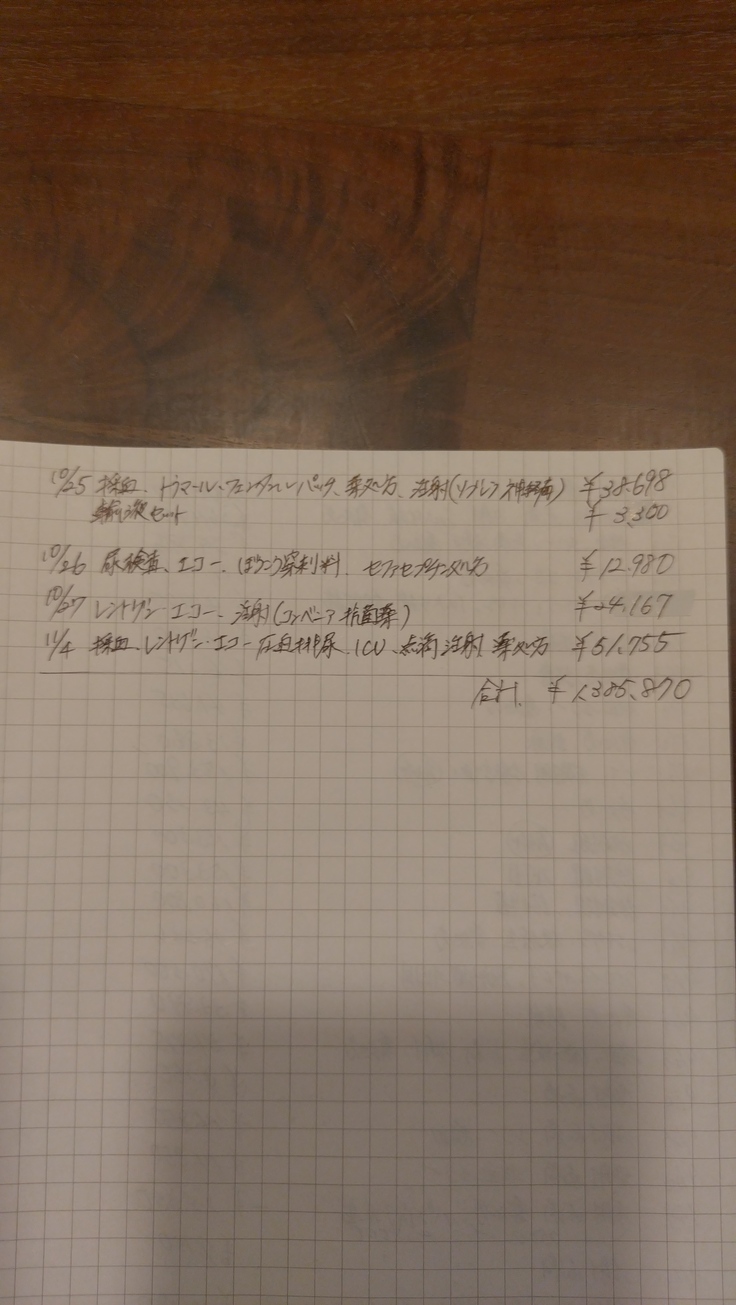 10/25 採血、トラマール、フェンタニルパッチ、薬処方、注射(ソルレア神経痛) ¥38.698
輸液セット ¥3,300
10/26 尿検査、エコー、ぼうこう穿刺料、セファセプテン処方 ¥12.980
10/27 レントゲン、エコー、注射(コンベニア抗菌薬) ¥24.167
11/4 採血、レントゲン、エコー圧迫排尿、ICU、点滴注射、薬処方 ¥51.755
合計、¥1,385.870